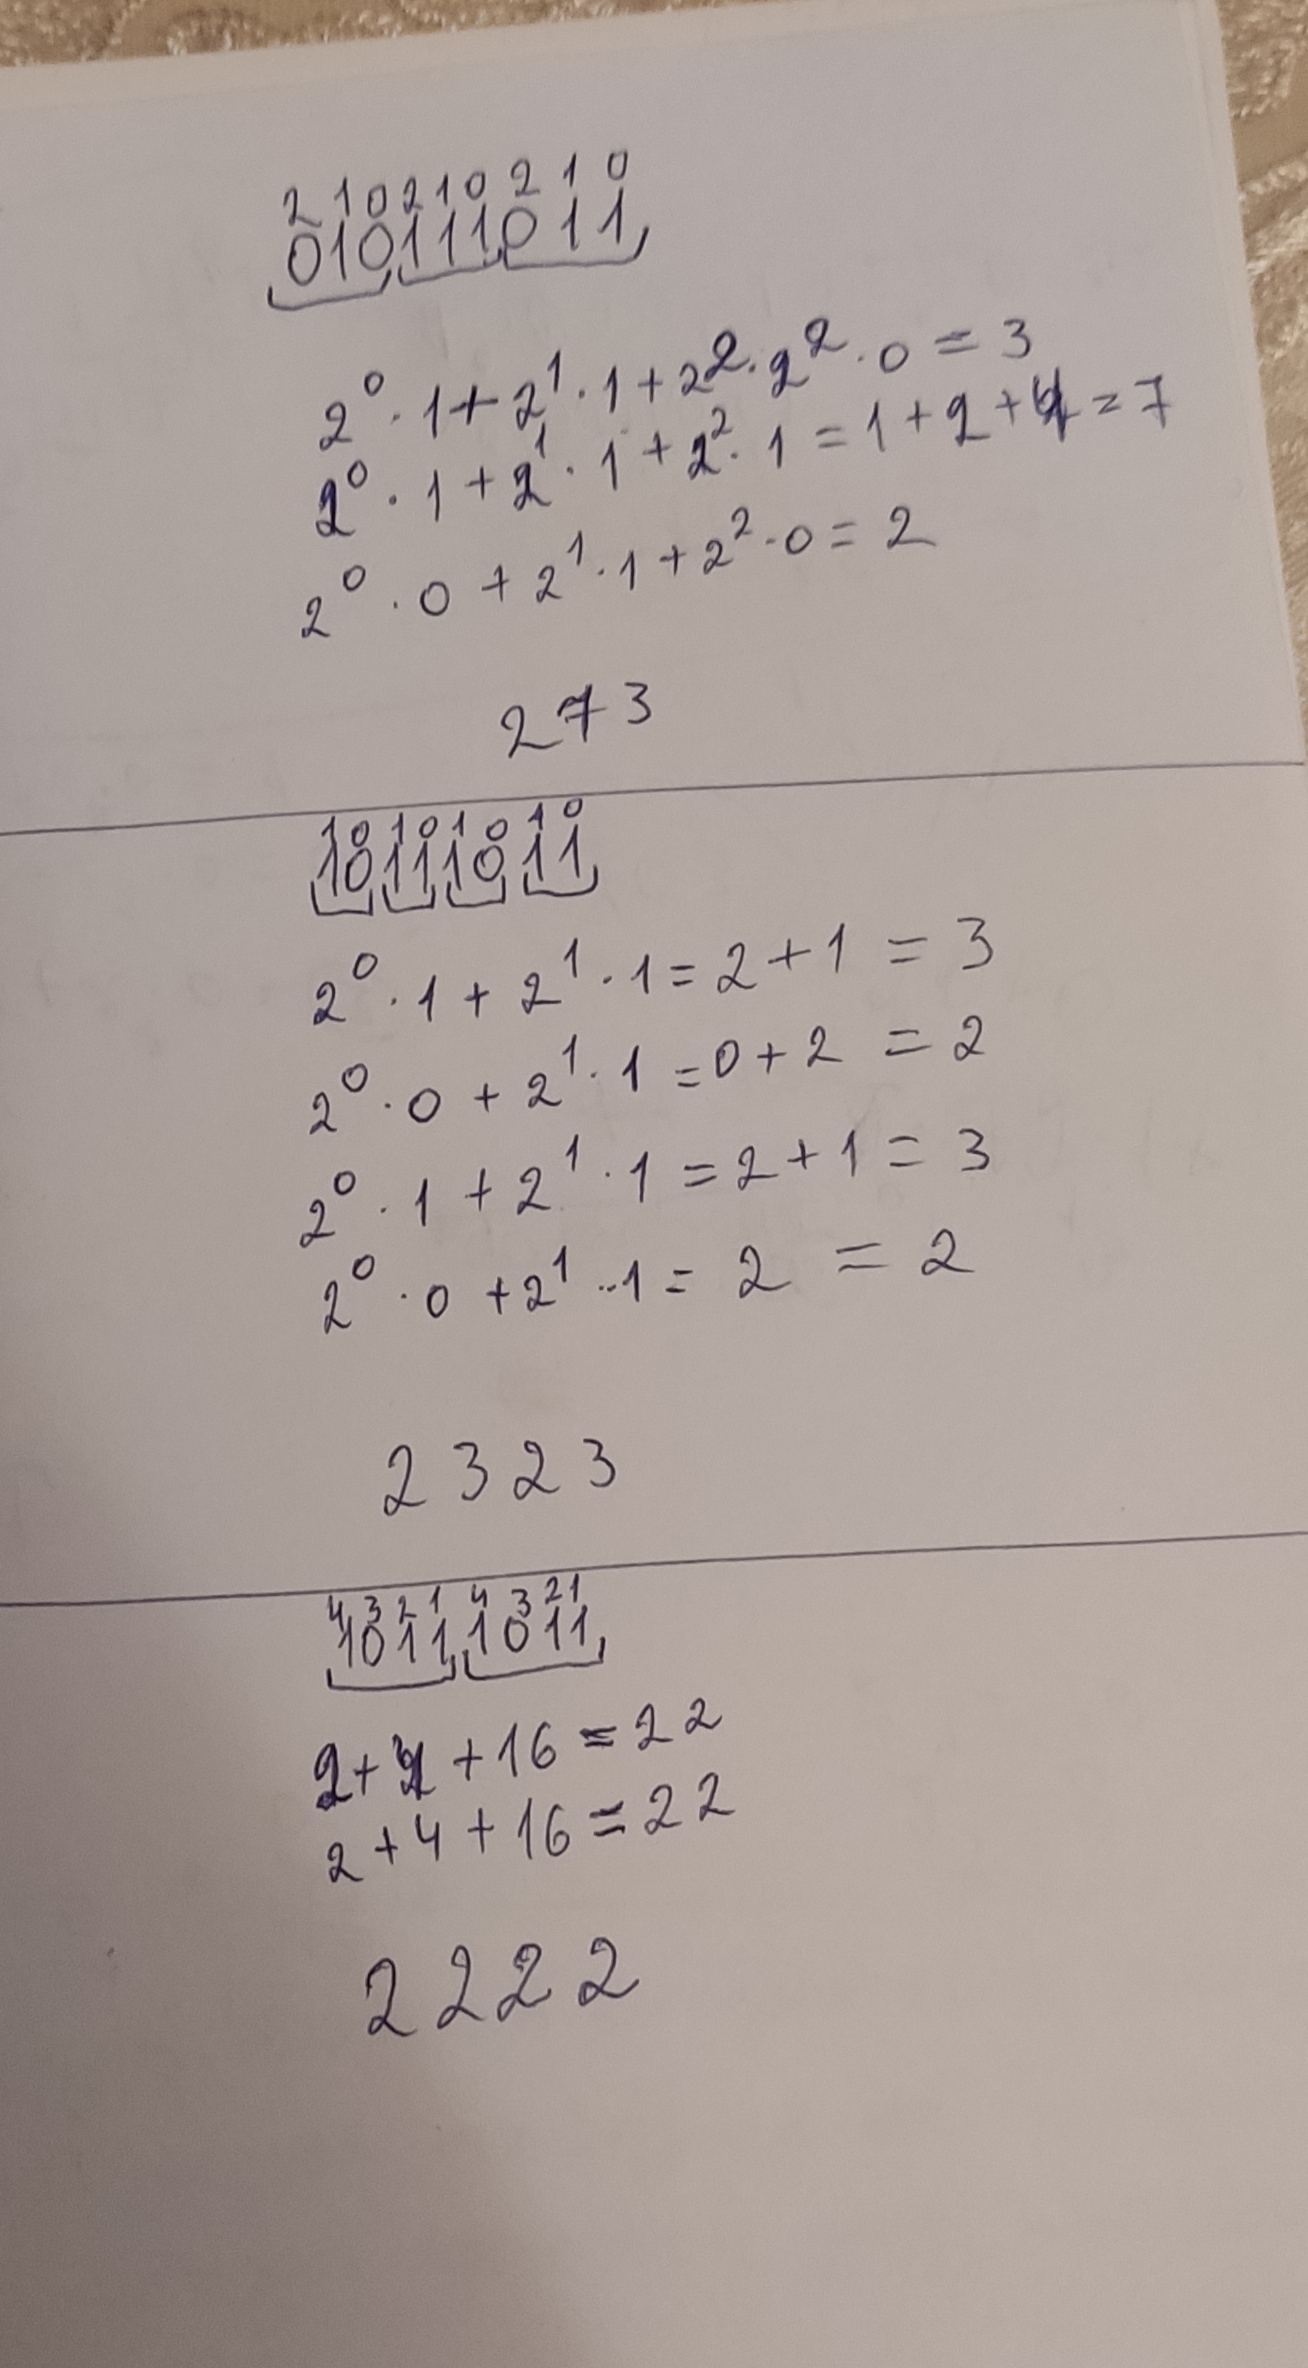 2 1 0 2 1 0 2 1 0
010111011
2⁰ · 1 + 2¹ · 1 + 2² · 2² · 0 = 3
2⁰ · 1 + 2¹ · 1 + 2² · 1 = 1 + 2 + 4 = 7
2⁰ · 0 + 2¹ · 1 + 2² · 0 = 2
273
1 0 1 0 1 0 1 0
10111011
2⁰ · 1 + 2¹ · 1 = 2 + 1 = 3
2⁰ · 0 + 2¹ · 1 = 0 + 2 = 2
2⁰ · 1 + 2¹ · 1 = 2 + 1 = 3
2⁰ · 0 + 2¹ ·· 1 = 2 = 2
2 3 2 3
4 3 2 1 4 3 2 1
1011 1011
2 + 4 + 16 = 22
2 + 4 + 16 = 22
2 2 2 2